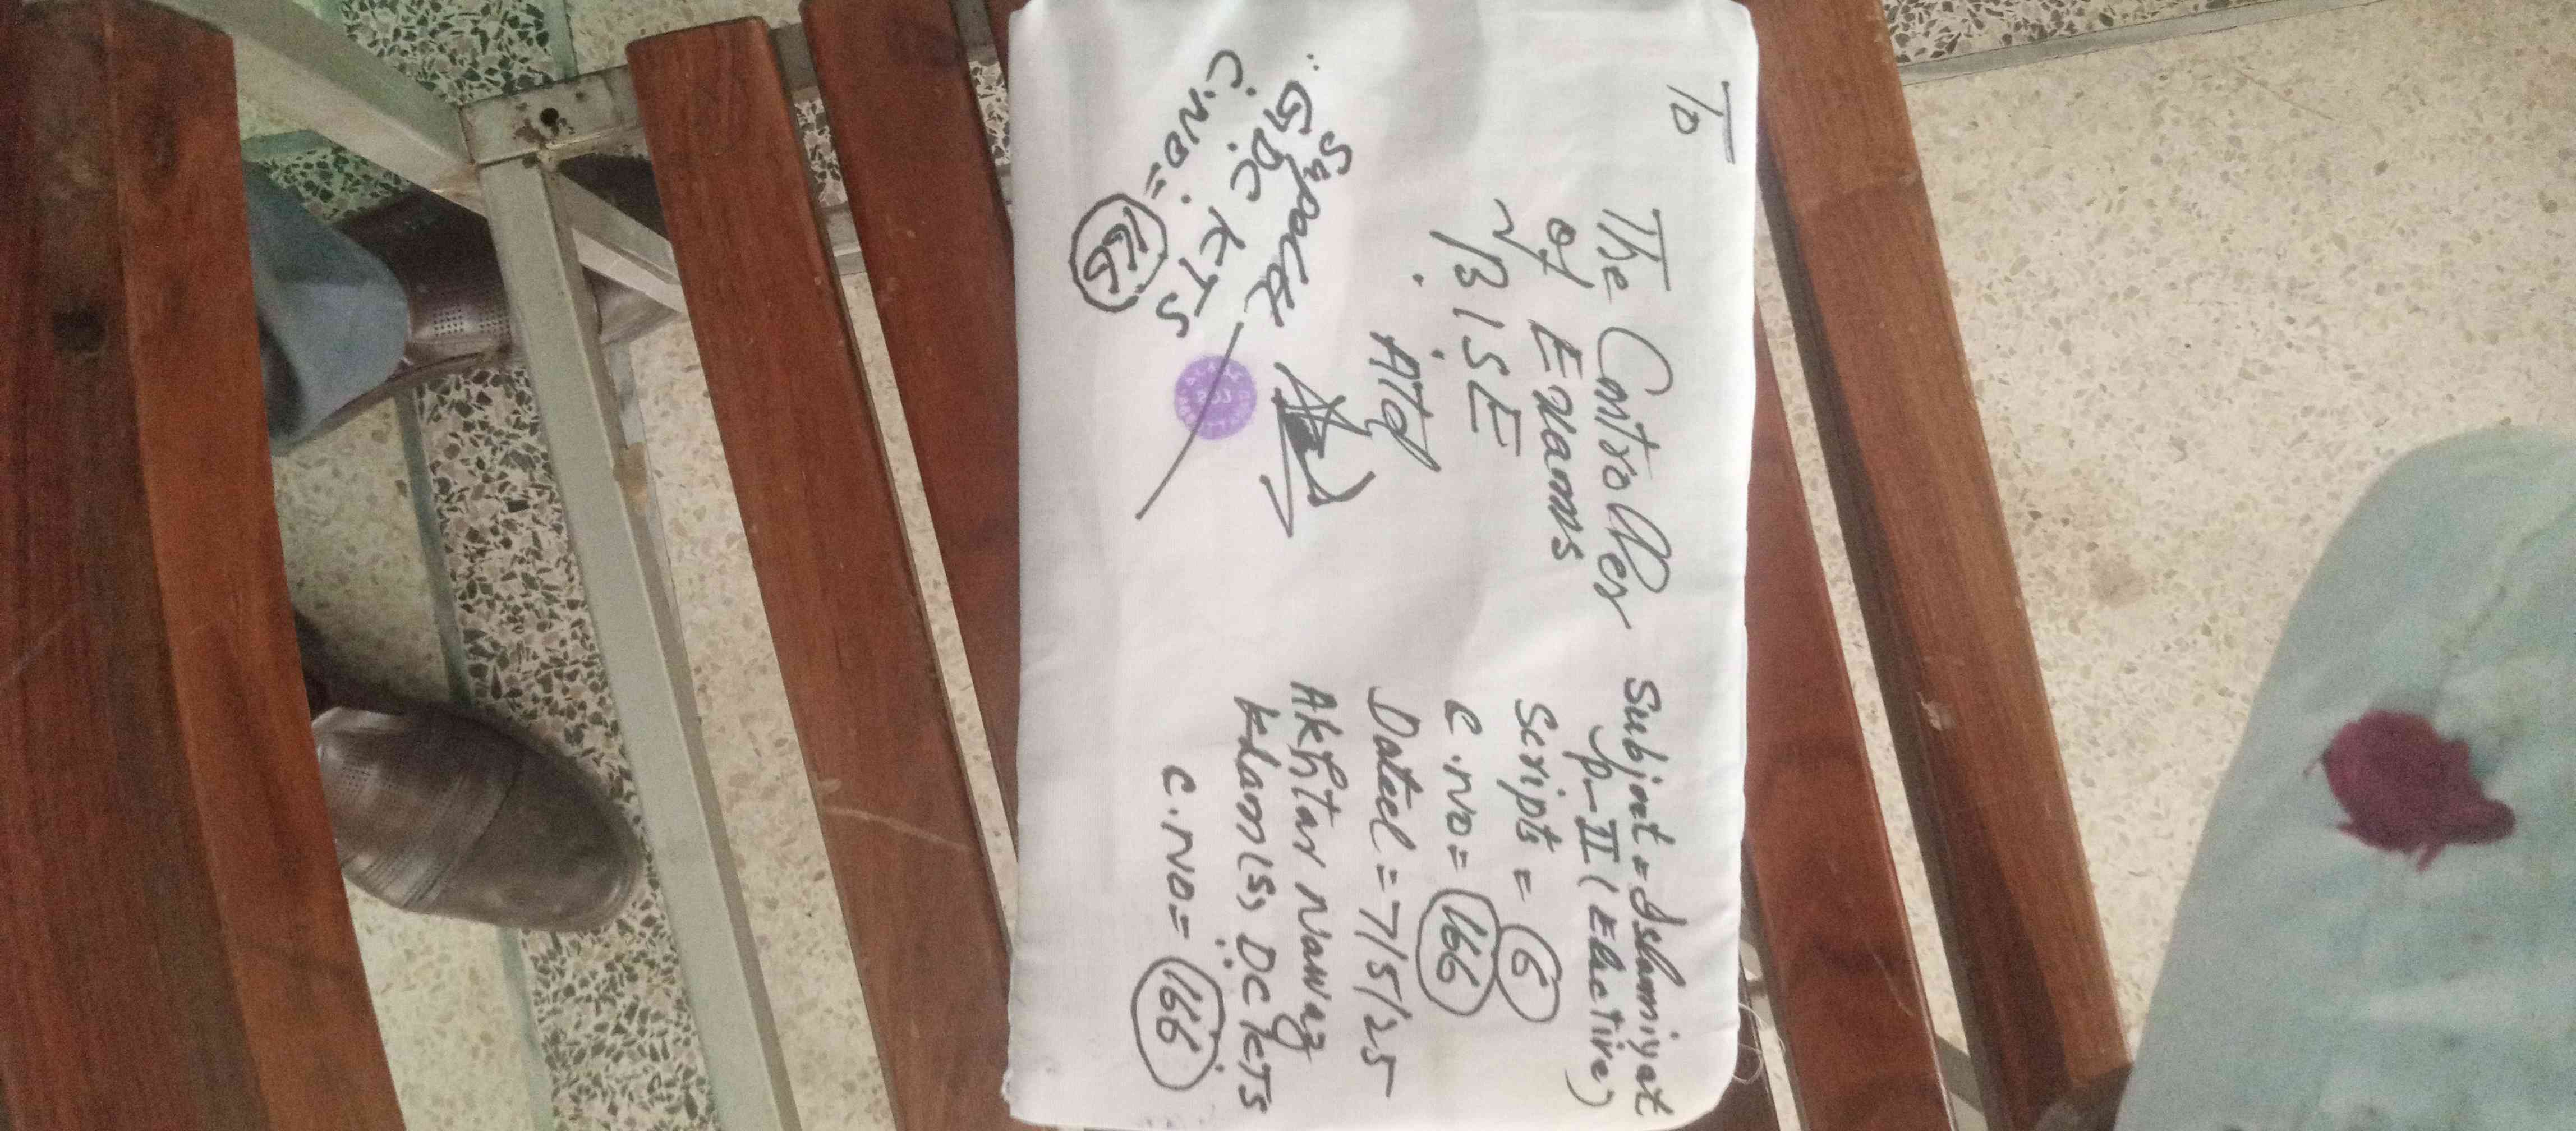 To
The Controller
of Exams
BISE
ATd
Subject = Islamiyat
p-II (Elective)
Scripts = 6
C.No = 166
Dated = 7/5/25
Akhtar Nawaz
G.DC KTS
C.NO = 166
DC KTS
C.NO = 166